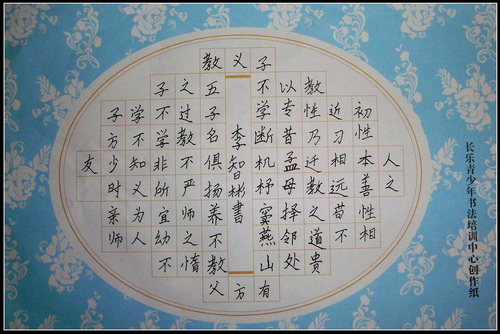 人之
初性本善性相
近习相远苟不
教性乃迁教之道贵
以专昔孟母择邻处
子不学断机杼窦燕山有
义方
教五子名俱扬养不教父
之过教不严师之惰
子不学非所宜幼不
学不知义为人
子方少时亲师
友
李智彬書
长乐青少年书法培训中心创作纸